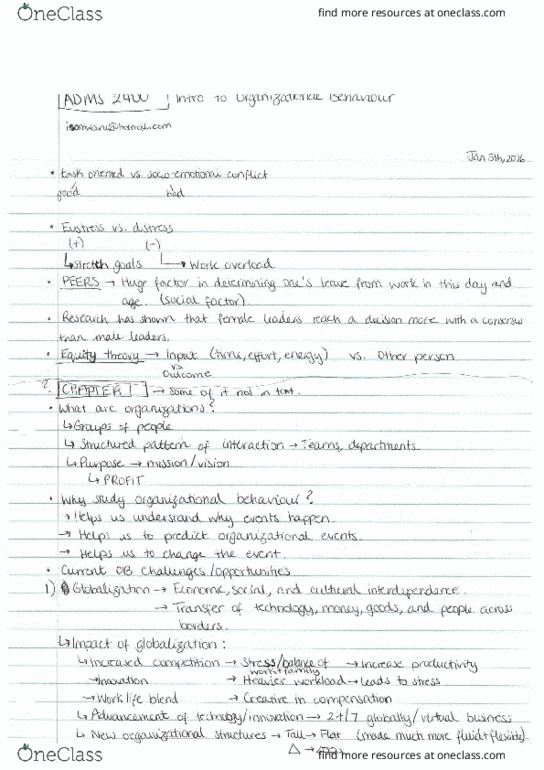 OneClass
find more resources at oneclass.com
ADMS 2400 Intro to Organizational Behaviour
Jan 5th, 2016
• task oriented vs. socio-emotional conflict
good bad
• Eustress vs. distress
(+) (-)
↳ stretch goals ↳ work overload
• PEERS → Huge factor in determining one's leave from work in this day and
age. (social factor)
• Research has shown that female leaders reach a decision more with a consensus
than male leaders.
• Equity theory → Input (time, effort, energy) vs. Other person
vs
outcome
? CHAPTER 1 → some of it not in text.
• What are organizations?
↳ Groups of people
↳ Structured pattern of interaction → Teams, departments
↳ Purpose → mission/vision
↳ PROFIT
• Why study organizational behaviour?
→ Helps us understand why events happen.
→ Helps us to predict organizational events.
→ Helps us to change the event.
• Current OB challenges/opportunities
1) Globalization → Economic, social, and cultural interdependence.
→ Transfer of technology, money, goods, and people across
borders.
↳ Impact of globalization:
↳ Increased competition → Stress/balance of work+family → Increase productivity
→ Innovation → Heavier workload → leads to stress
→ Work life blend → Creative in compensation
↳ Advancement of technology/innovation → 24/7 globally/virtual business
↳ New organizational structures → Tall → Flat (made much more fluid + flexible)
△ →
OneClass
find more resources at oneclass.com